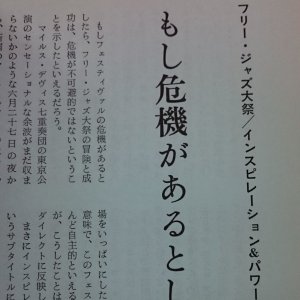 フリー・ジャズ大祭／インスピレーション＆パワー
もし危機があるとし
もしフェスティヴァルの危機があると
したら、フリー・ジャズ大祭の冒険と成
功は、危機が不可避的ではないというこ
とを示したといえるだろう。
マイルス・デヴィス七重奏団の東京公
演のセンセーショナルな余波がまだ収ま
らないかのような六月二十七日の夜か
場をいっぱいにした
意味で、このフェス
んど自主的といえる
が、こうしたことは
ダイレクトに反映し
まさにインスピレ
いうサブタイトルに